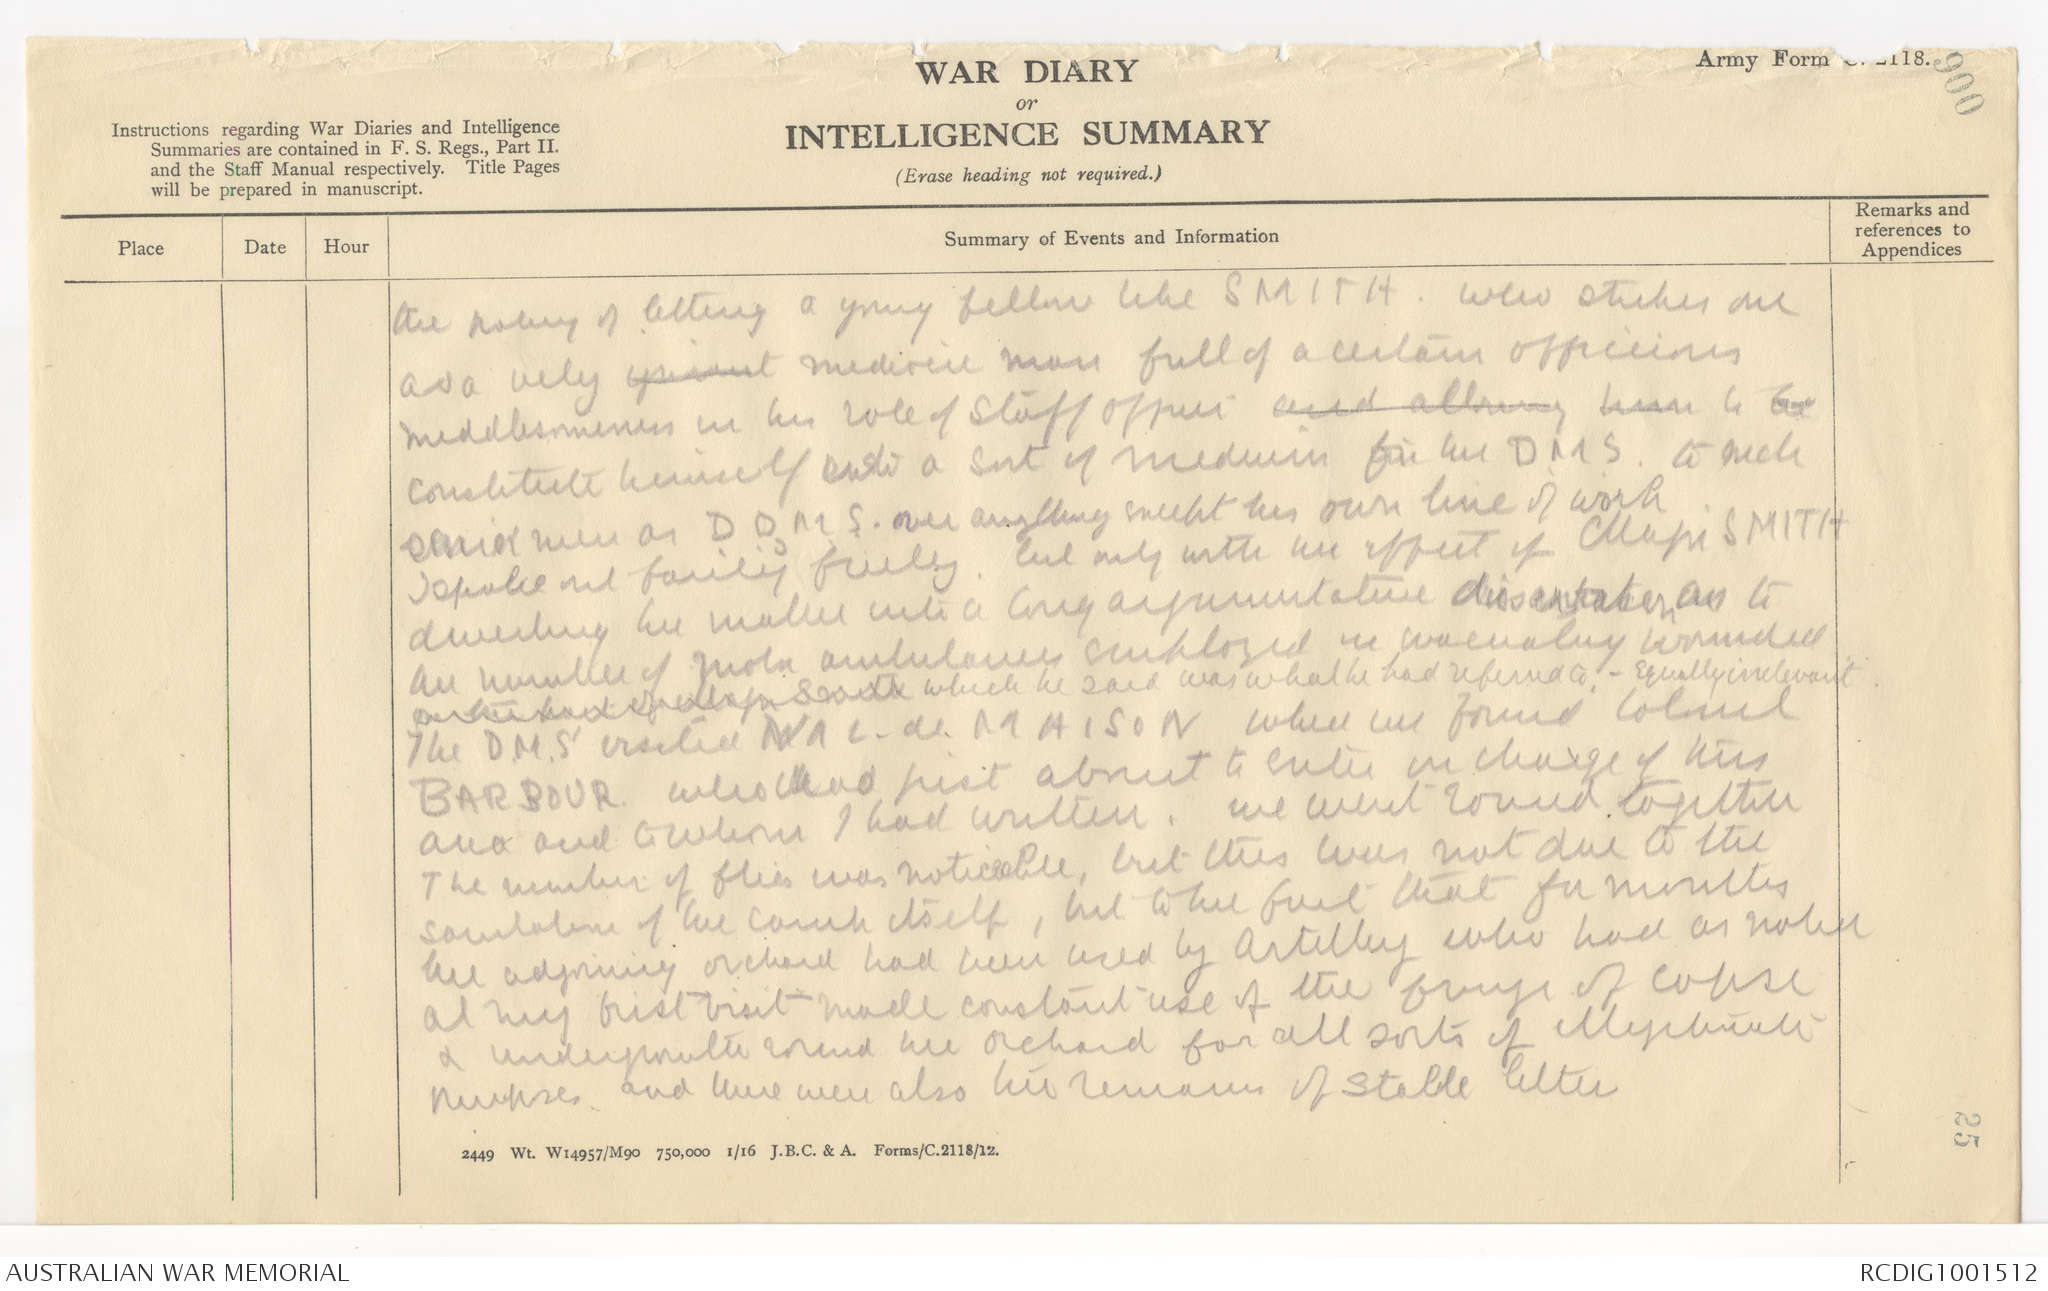 Army Form C. 2118.
900
WAR DIARY
or
INTELLIGENCE SUMMARY
(Erase heading not required.)
Instructions regarding War Diaries and Intelligence
Summaries are contained in F. S. Regs., Part II.
and the Staff Manual respectively. Title Pages
will be prepared in manuscript.
Place
Date
Hour
Summary of Events and Information
Remarks and
references to
Appendices
the policy of letting a young fellow like SMITH. who strikes one
as a very medicine man full of a certain officious
meddlesomeness in his role of Staff officer and allowing him to be
constitute himself into a sort of medium for the DMS. to such
senior men as DDMS. over anything except his own line of work
I spoke out fairly freely. but only with the effect of Major SMITH
diverting the matter into a long argumentative as to
the number of motor ambulances employed in evacuating wounded
which he said was what he had referred to, - Equally irrelevant.
The D.M.S visited VAL-de MAISON where we found Colonel
BARBOUR who had just about to enter in charge of this
area and to whom I had written. we went round together
The number of flies was noticeable, but this was not due to the
sanitation of the camp itself, but to the fact that for months
the adjoining orchard had been used by Artillery who had as noted
at my first visit made constant use of the fringe of copse
& undergrowth round the orchard for all sorts of illegitimate
purposes. and there were also the remains of stable litter
2449 Wt. W14957/M90 750,000 1/16 J.B.C. & A. Forms/C.2118/12.
25
AUSTRALIAN WAR MEMORIAL
RCDIG1001512